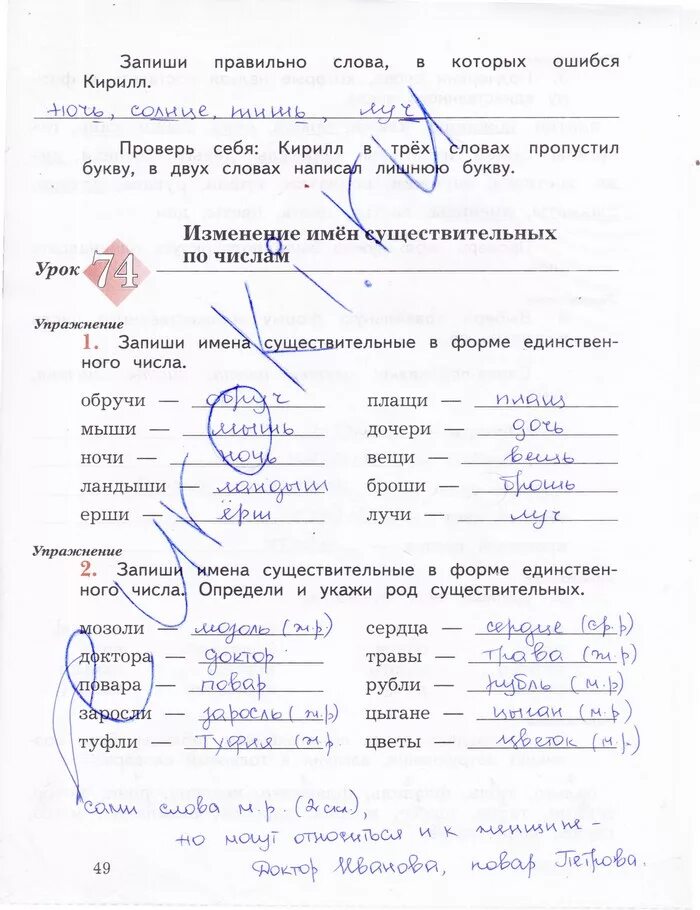 Запиши правильно слова, в которых ошибся
Кирилл.
ночь, солнце, тишь, луч
Проверь себя: Кирилл в трёх словах пропустил
букву, в двух словах написал лишнюю букву.
Урок 74
Изменение имён существительных
по числам
Упражнение
1. Запиши имена существительные в форме единствен-
ного числа.
обручи — обруч плащи — плащ
мыши — мышь дочери — дочь
ночи — ночь вещи — вещь
ландыши — ландыш броши — брошь
ерши — ёрш лучи — луч
Упражнение
2. Запиши имена существительные в форме единствен-
ного числа. Определи и укажи род существительных.
мозоли — мозоль (ж.р) сердца — сердце (ср.р)
доктора — доктор травы — трава (ж.р)
повара — повар рубли — рубль (м.р)
заросли — заросль (ж.р) цыгане — цыган (м.р)
туфли — туфля (ж.р цветы — цветок (м.р.)
сами слова м.р. (2 скл),
но могут относиться и к женщине –
Доктор Иванова, повар Петрова.
49